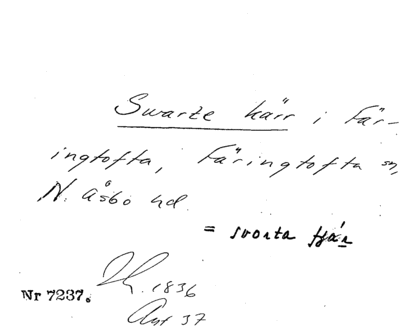 Swarte kärr i Fär-
ingtofta, Färingtofta sn,
N. Åsbo hd.
= svorta
Nr 7237.
1836
37